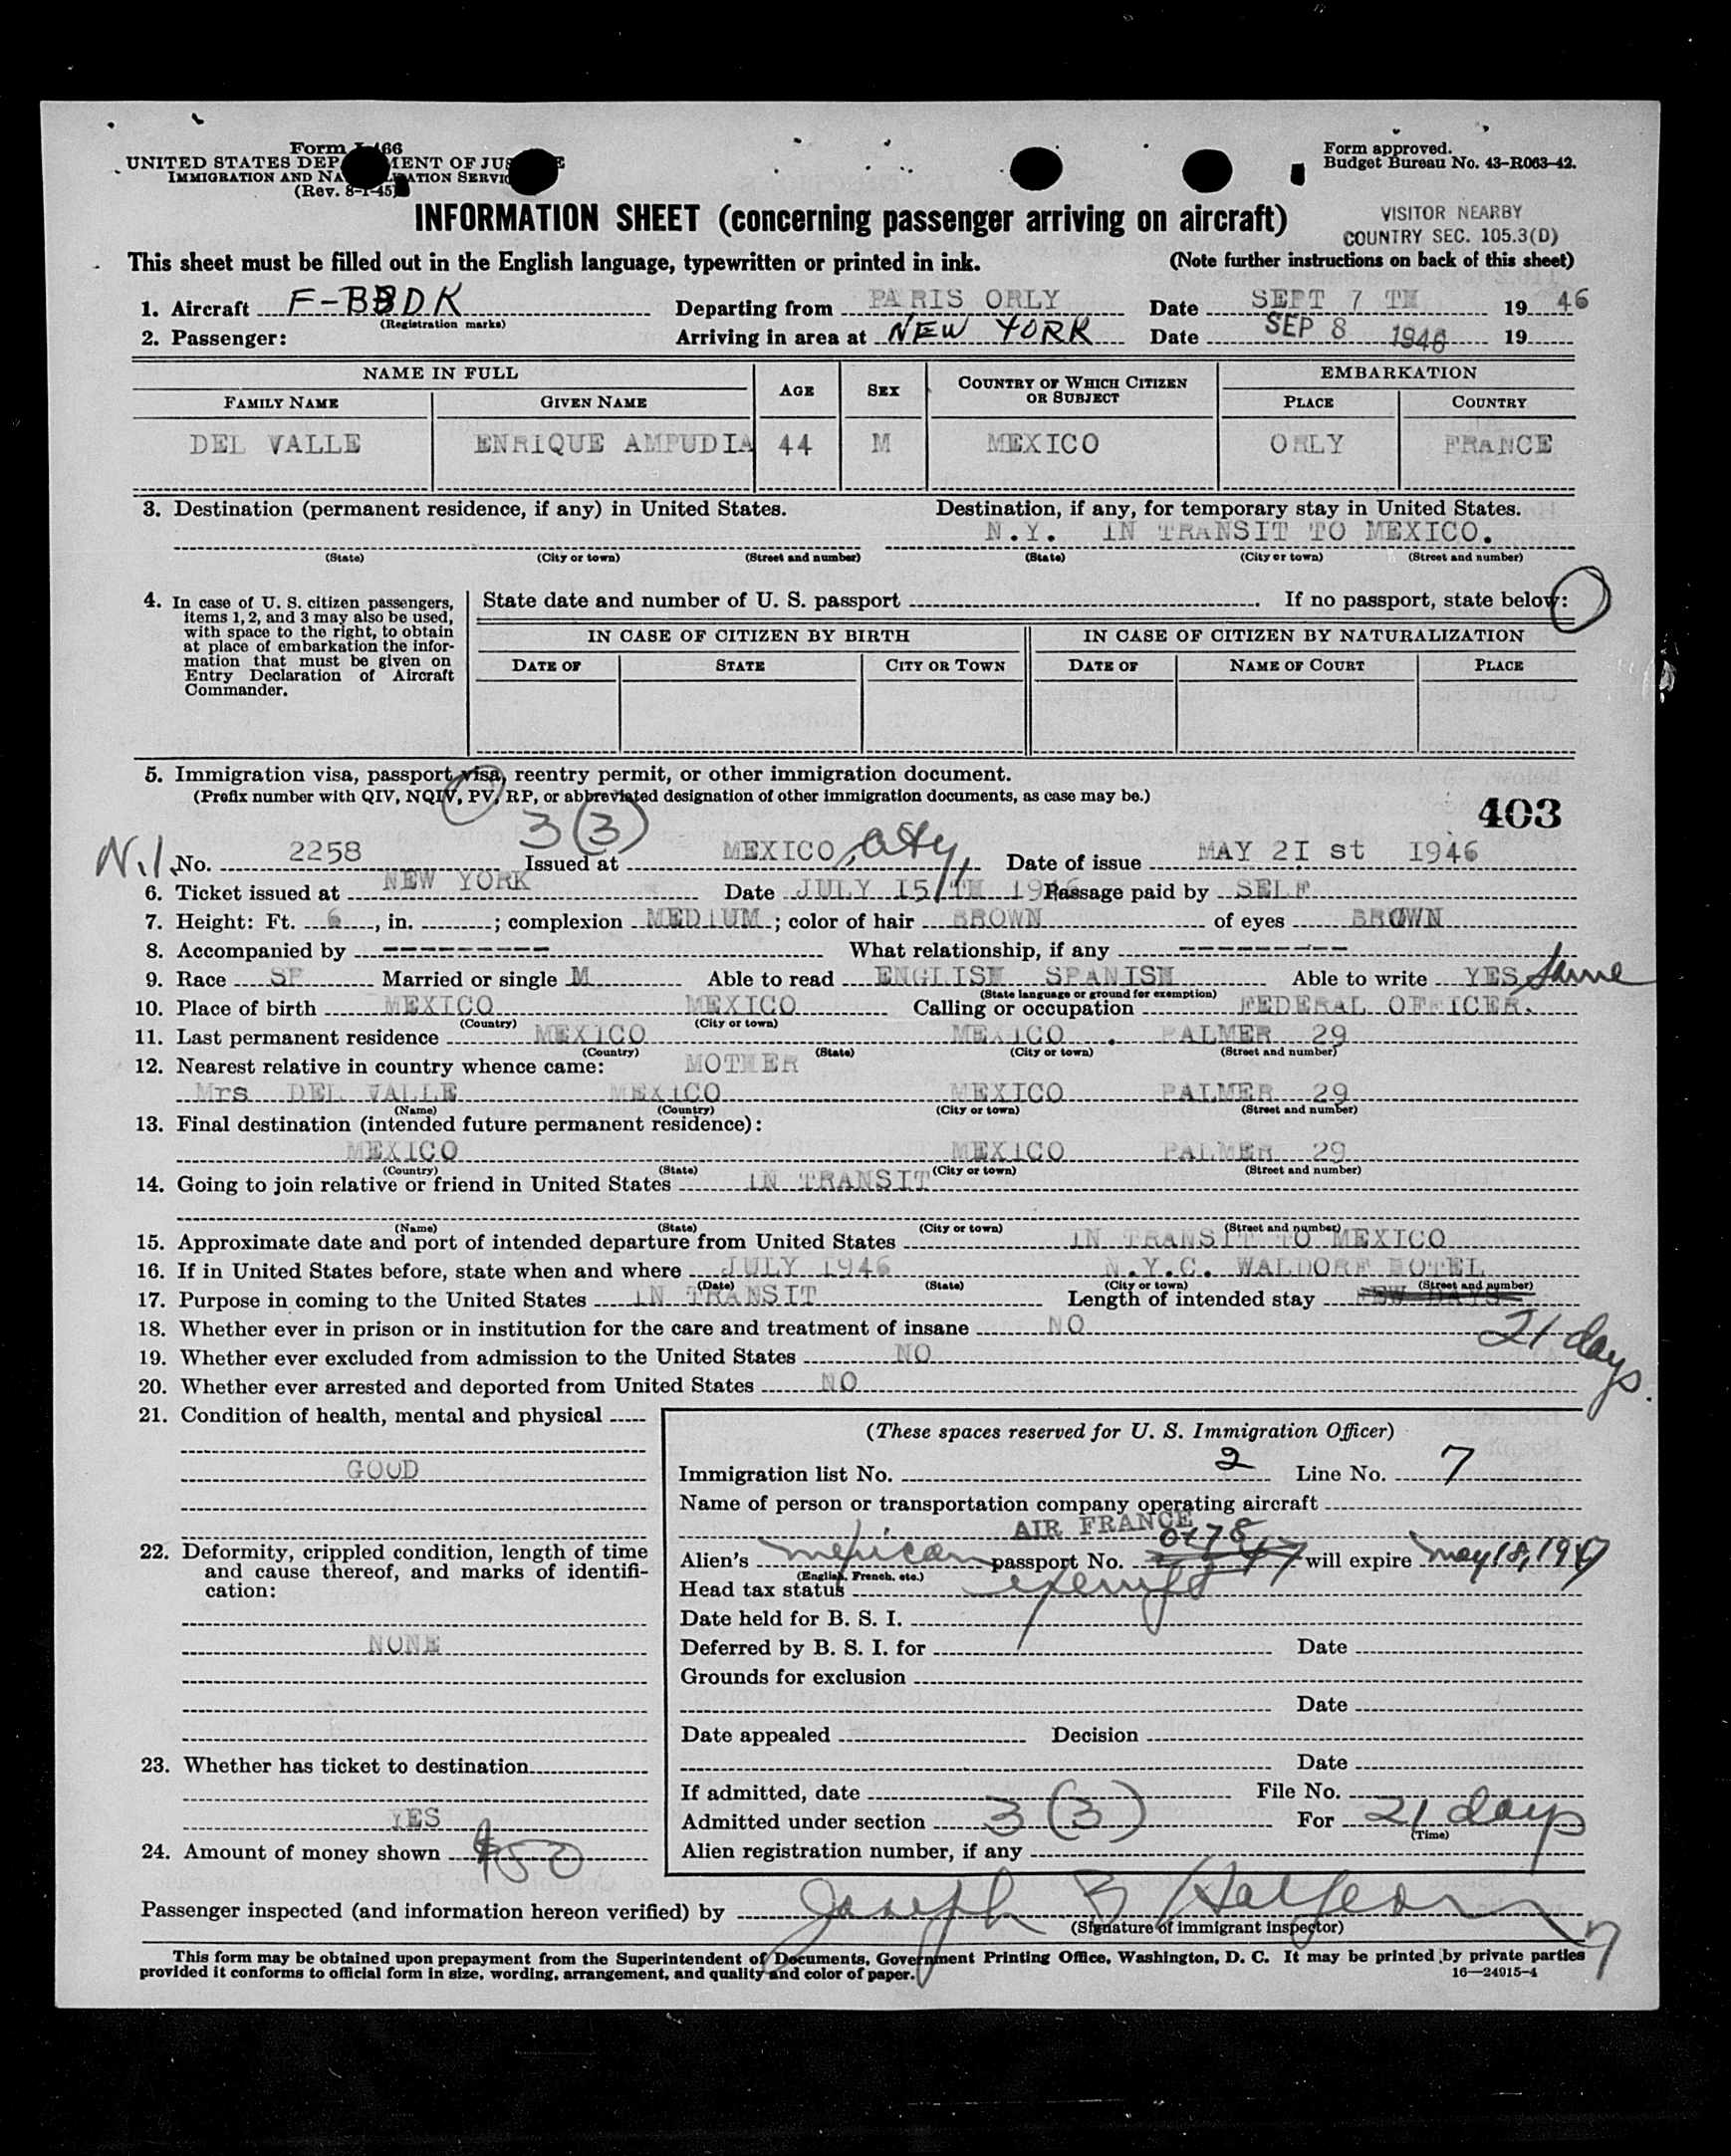 Form I-466
UNITED STATES DEPARTMENT OF JUSTICE
IMMIGRATION AND NATURALIZATION SERVICE
(Rev. 8-1-45)
Form approved.
Budget Bureau No. 43-R063-42.
INFORMATION SHEET (concerning passenger arriving on aircraft)
VISITOR NEARBY
COUNTRY SEC. 105.3(D)
This sheet must be filled out in the English language, typewritten or printed in ink. (Note further instructions on back of this sheet)
1. Aircraft F-BBDK Departing from PARIS ORLY Date SEPT 7 TH 19 46
(Registration marks)
2. Passenger: Arriving in area at NEW YORK Date SEP 8 1946 19
NAME IN FULL AGE SEX COUNTRY OF WHICH CITIZEN OR SUBJECT EMBARKATION
FAMILY NAME GIVEN NAME PLACE COUNTRY
DEL VALLE ENRIQUE AMPUDIA 44 M MEXICO ORLY FRANCE
3. Destination (permanent residence, if any) in United States. Destination, if any, for temporary stay in United States.
N.Y. IN TRANSIT TO MEXICO.
(State) (City or town) (Street and number) (State) (City or town) (Street and number)
4. In case of U. S. citizen passengers, items 1, 2, and 3 may also be used, with space to the right, to obtain at place of embarkation the information that must be given on Entry Declaration of Aircraft Commander.
State date and number of U. S. passport . If no passport, state below:
IN CASE OF CITIZEN BY BIRTH IN CASE OF CITIZEN BY NATURALIZATION
DATE OF STATE CITY OR TOWN DATE OF NAME OF COURT PLACE
5. Immigration visa, passport visa, reentry permit, or other immigration document.
(Prefix number with QIV, NQIV, PV, RP, or abbreviated designation of other immigration documents, as case may be.)
403
3(3)
N.I. No. 2258 Issued at MEXICO, City, Date of issue MAY 2I st 1946
6. Ticket issued at NEW YORK Date JULY I5/TH 1946 Passage paid by SELF
7. Height: Ft. 6, in. ; complexion MEDIUM; color of hair BROWN of eyes BROWN
8. Accompanied by ---------- What relationship, if any ----------
9. Race SP Married or single M Able to read ENGLISH SPANISH Able to write YES Same
(State language or ground for exemption)
10. Place of birth MEXICO MEXICO Calling or occupation FEDERAL OFFICER.
(Country) (City or town)
11. Last permanent residence MEXICO MEXICO . PALMER 29
(Country) (State) (City or town) (Street and number)
12. Nearest relative in country whence came: MOTHER
Mrs DEL VALLE MEXICO MEXICO PALMER 29
(Name) (Country) (City or town) (Street and number)
13. Final destination (intended future permanent residence):
MEXICO MEXICO PALMER 29
(Country) (State) (City or town) (Street and number)
14. Going to join relative or friend in United States IN TRANSIT
(Name) (State) (City or town) (Street and number)
15. Approximate date and port of intended departure from United States IN TRANSIT TO MEXICO
16. If in United States before, state when and where JULY 1946 N.Y.C. WALDORF HOTEL
(Date) (State) (City or town) (Street and number)
17. Purpose in coming to the United States IN TRANSIT Length of intended stay FEW DAYS
21 days.
18. Whether ever in prison or in institution for the care and treatment of insane NO
19. Whether ever excluded from admission to the United States NO
20. Whether ever arrested and deported from United States NO
21. Condition of health, mental and physical
GOOD
22. Deformity, crippled condition, length of time and cause thereof, and marks of identification:
NONE
23. Whether has ticket to destination
YES
24. Amount of money shown $50
(These spaces reserved for U. S. Immigration Officer)
Immigration list No. 2 Line No. 7
Name of person or transportation company operating aircraft
AIR FRANCE
Alien's Mexican passport No. 0178 will expire May 18, 1947
(English, French, etc.)
Head tax status exempt
Date held for B. S. I.
Deferred by B. S. I. for Date
Grounds for exclusion
Date
Date appealed Decision
Date
If admitted, date File No.
Admitted under section 3 (3) For 21 days
(Time)
Alien registration number, if any
Passenger inspected (and information hereon verified) by Joseph B
(Signature of immigrant inspector)
This form may be obtained upon prepayment from the Superintendent of Documents, Government Printing Office, Washington, D. C. It may be printed by private parties
provided it conforms to official form in size, wording, arrangement, and quality and color of paper.
16—24915-4